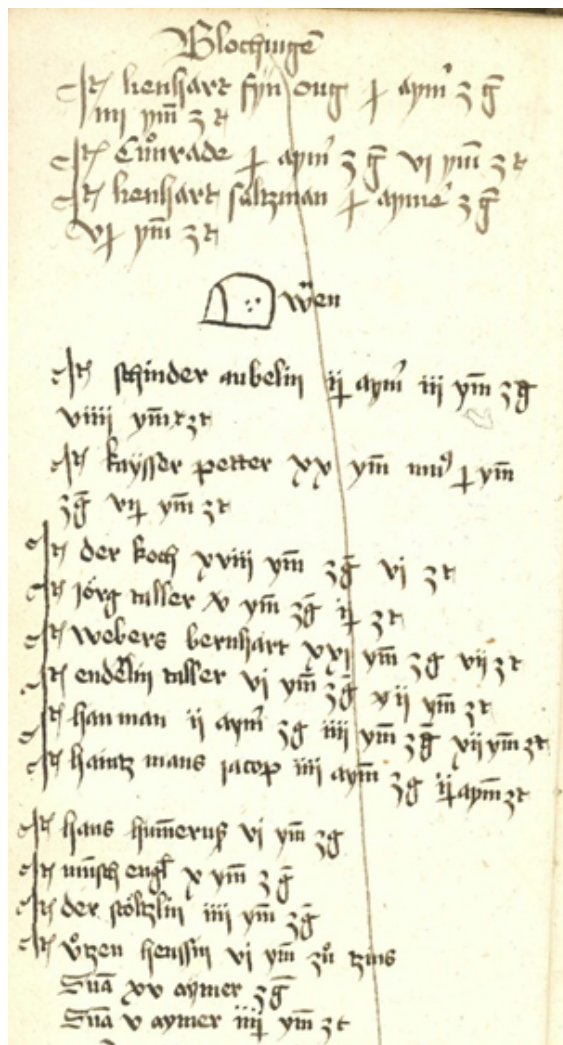 Blochingē
It henhart fyn oug j aymˀ zg̅
iiii ym̅ zt
It Cůnrade j aymˀ zg̅ vi ym̅ zt
It henhart saltzman j aymeˀ zg̅
vj ym̅ zt
wen
It schinder aubelin ij aymˀ iii ym̅ zg̅
viiii ym̅ zt
It kaysser petter xx ym̅ j ym̅
zg̅ vij ym̅ zt
It der koch xviii ym̅ zg̅ vj zt
It jörg taller x ym̅ zg̅ ij zt
It webers bernhart xxj ym̅ zg vij zt
It endelin taller vj ym̅ zg̅ xii ym̅ zt
It hanman ii aymˀ zg iiii ym̅ zg̅ xii ym̅ zt
It haintz mans jacop iiii aym̅ zg ij aym̅ zt
It hans vj ym̅ zg
It engl x ym̅ zg̅
It der stöltzlin iiii ym̅ zg̅
It ůtzen henslin vj ym̅ zů tzins
Sūa xv aymer zg̅
Sūa v aymer ym̅ zt